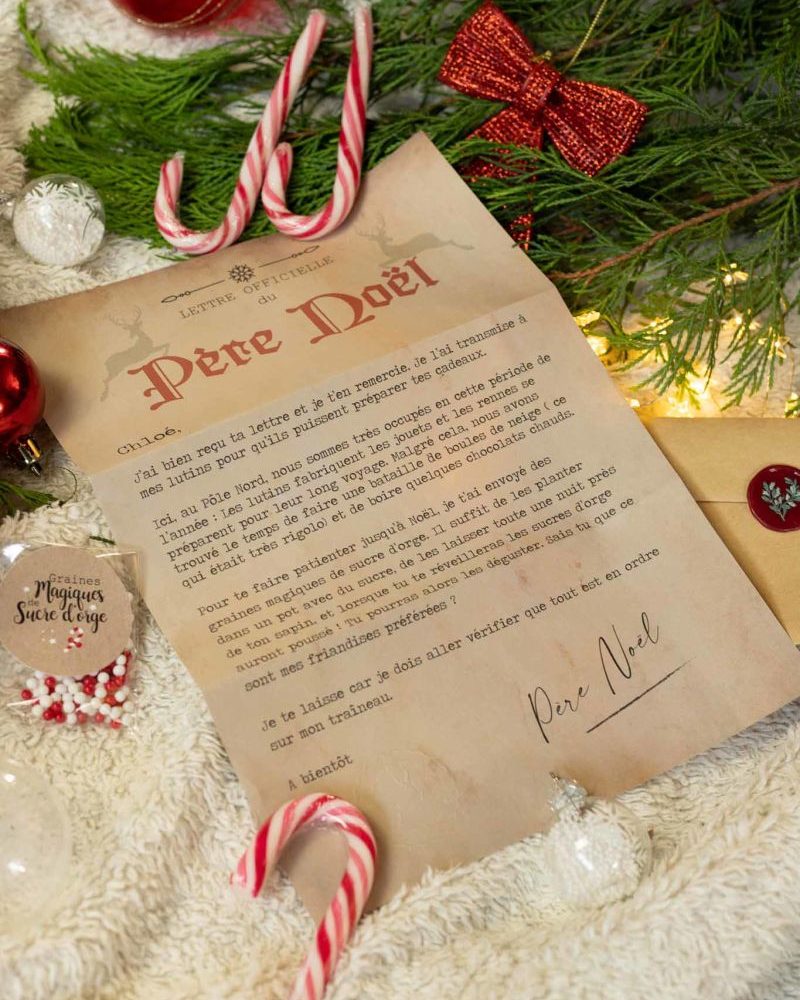 LETTRE OFFICIELLE
du
Père Noël
Chloé,
J'ai bien reçu ta lettre et je t'en remercie. Je l'ai transmise à
mes lutins pour qu'ils puissent préparer tes cadeaux.
Ici, au Pôle Nord, nous sommes très occupés en cette période de
l'année : Les lutins fabriquent les jouets et les rennes se
préparent pour leur long voyage. Malgré cela, nous avons
trouvé le temps de faire une bataille de boules de neige ( ce
qui était très rigolo) et de boire quelques chocolats chauds.
Pour te faire patienter jusqu'à Noël, je t'ai envoyé des
graines magiques de sucre d'orge. Il suffit de les planter
dans un pot avec du sucre, de les laisser toute une nuit près
de ton sapin, et lorsque tu te réveilleras les sucres d'orge
auront poussé ! Tu pourras alors les déguster. Sais tu que ce
sont mes friandises préférées ?
Je te laisse car je dois aller vérifier que tout est en ordre
sur mon traîneau.
A bientôt
Père Noël
Graines
Magiques
de
Sucre d'orge